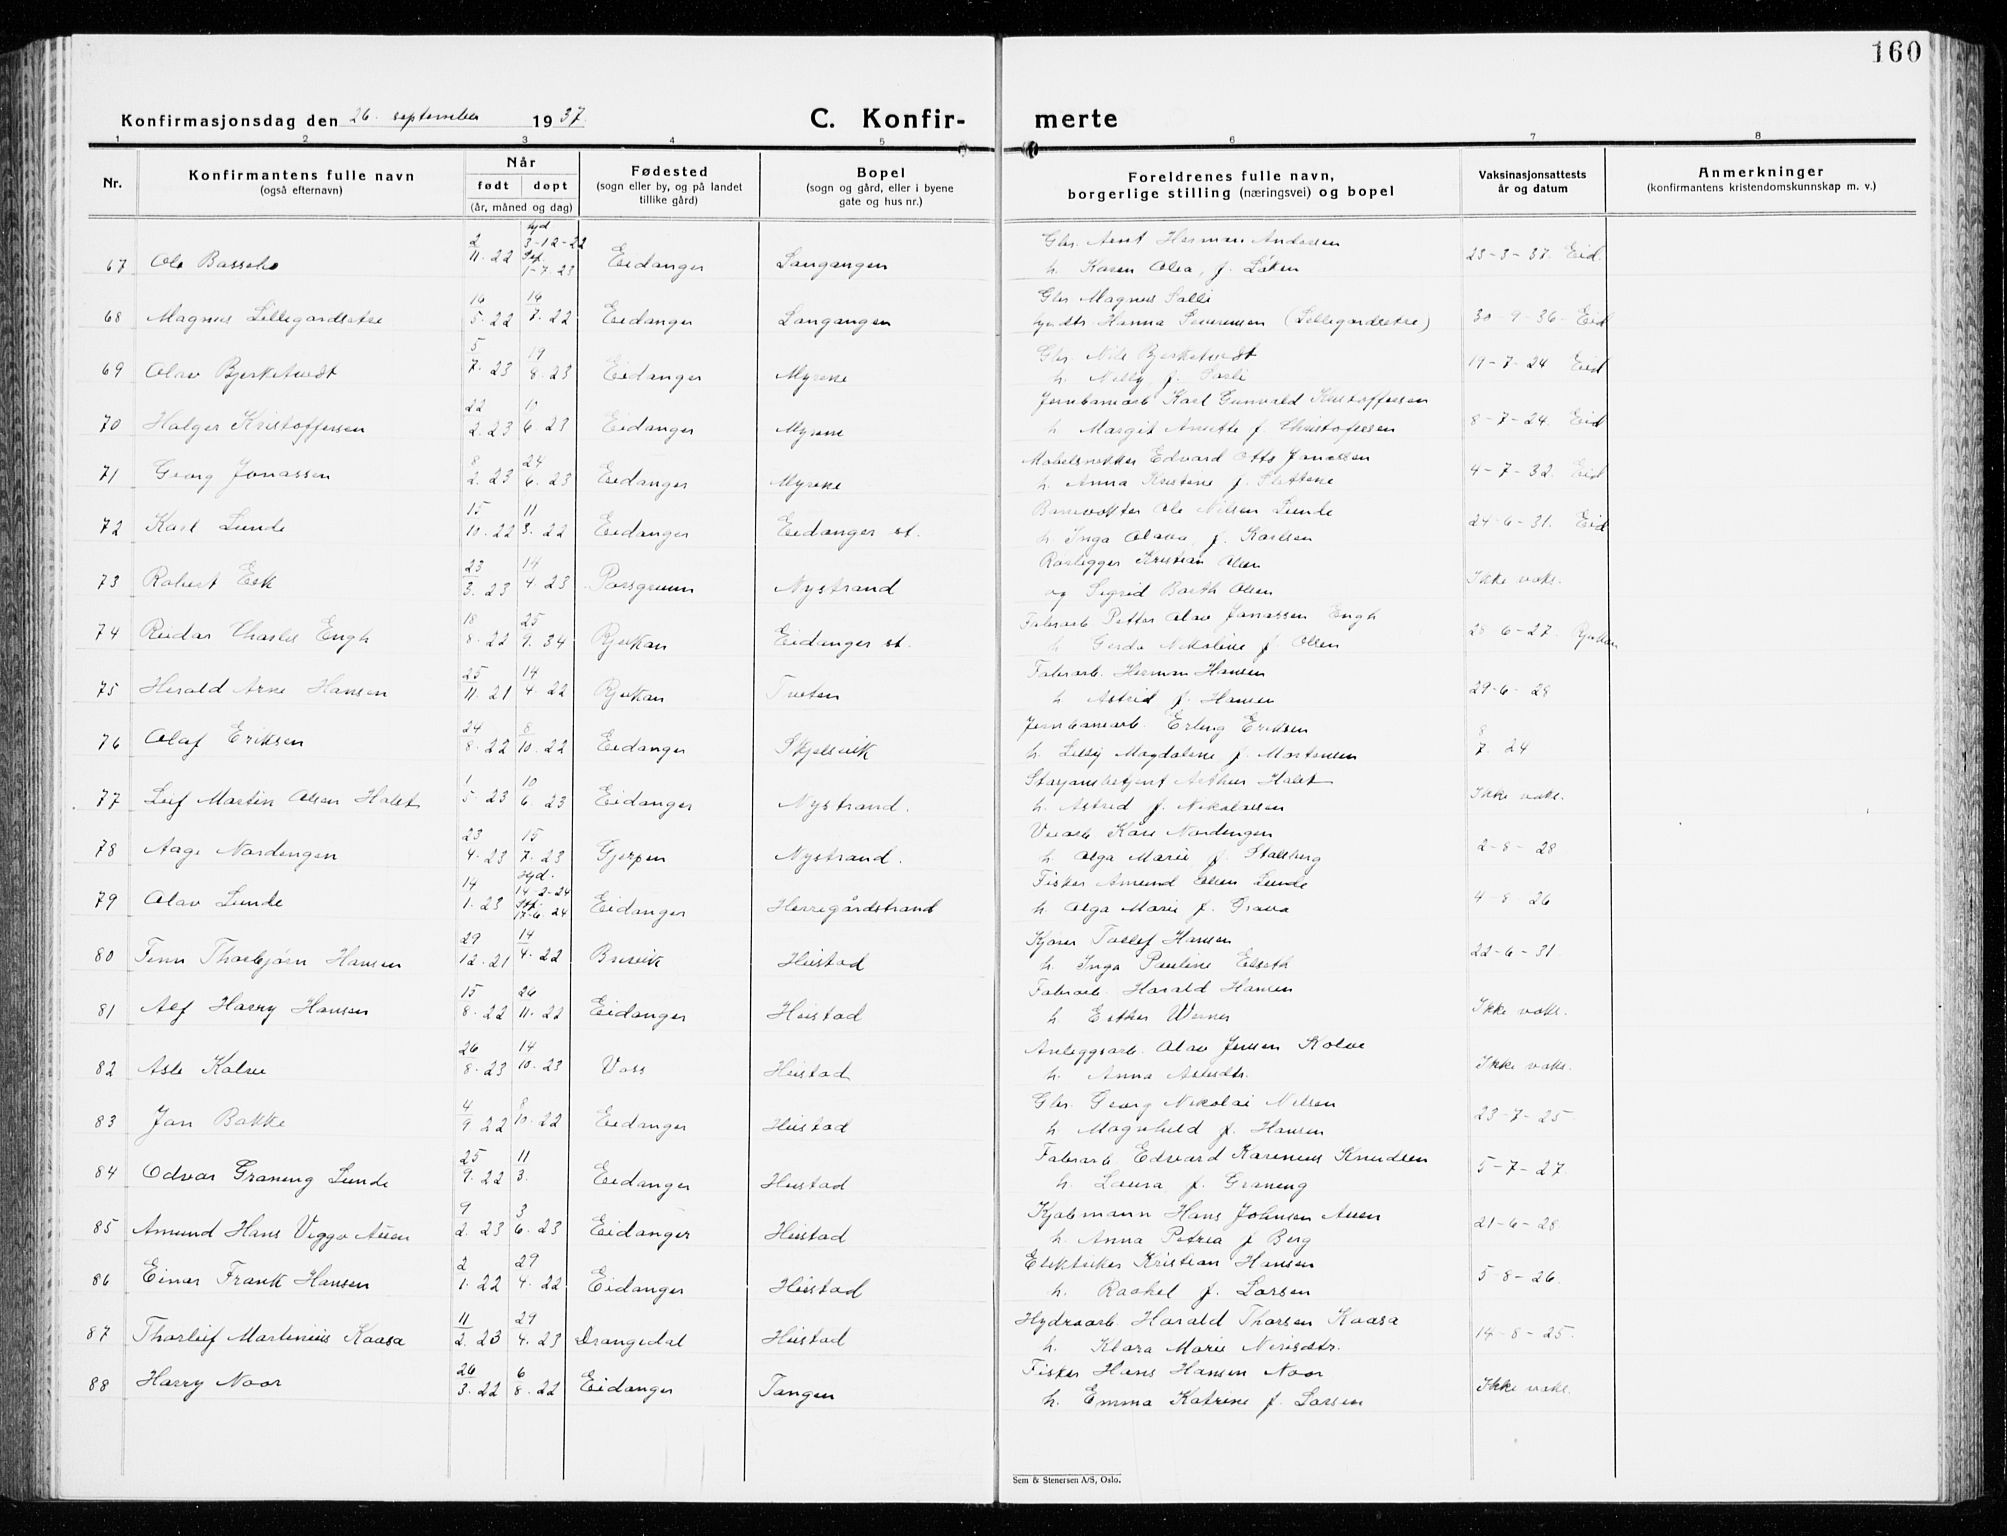 160
Konfirmasjonsdag den 26. september 1937.
C. Konfirmerte
1 2 3 4 5 6 7 8
Nr.
Konfirmantens fulle navn
(også efternavn)
Når
født døpt
(år, måned og dag)
Fødested
(sogn eller by, og på landet
tillike gård)
Bopel
(sogn og gård, eller i byene
gate og hus nr.)
Foreldrenes fulle navn,
borgerlige stilling (næringsvei) og bopel
Vaksinasjonsattests
år og datum
Anmerkninger
(konfirmantens kristendomskunnskap m. v.)
67 Ole Bassebo 2/11. 22 hjd 3-12-22 1-7-23 Eidanger Langangen Gbr. Arnt Herman Andersen h. Karen Olea, f. Løken 23-3-37. Eid.
68 Magnus Lillegardsetre 16/5. 22 16/7. 22 Eidanger Langangen Gbr Magnus Salli Hanna Severinsen (Lillegardsetre) 30-9-36- Eid
69 Olav Bjerketvedt 5/7. 23 19/8. 23 Eidanger Myrene Gbr. Nils Bjerketvedt h. Nelly, f. 19-7-24 Eid
70 Holger Kristoffersen 22/2. 23 10/6. 23 Eidanger Myrene Jernbanearb Karl Gunvald Kristoffersen h. Margit Anette f. Christofersen 8-7-24. Eid
71 Georg Jonassen 8/2. 23 24/6. 23 Eidanger Myrene Møbelsnekker Edvard Otto Jonassen h. Anna Kristine f. Slettene 4-7-32. Eid
72 Karl Lunde 15/10. 22 11/3. 22 Eidanger Eidanger st. Banevokter Ole Nilsen Lunde h. Inga Olava, f. Karlsen 24-6-31. Eid
73 Robert Eek 23/3. 23 14/4. 23 Porsgrunn Nystrand Rørlegger Kristian Olsen og Sigrid Barth Olsen Ikke vaks.
74 Reidar Charles Engh 18/8. 22 25/9. 34 Rjukan Eidanger st. Fabrarb Petter Olav Jonassen Engh h Gerda Nikoline f. Olsen 28 6-27. Rjukan
75 Herald Arne Hansen 25/11. 21 14/4. 22 Rjukan Tveten Fabrarb. Herman Hansen h Astrid f. Hansen 29-6-28
76 Olaf Eriksen 24/8. 22 8/10. 22 Eidanger Skjelsvik Jernbanearb. Erling Eriksen h. Lilly Magdalene f. Mortensen 8/7. 24
77 Leif Martin Olsen Holst 1/5. 23 10/6. 23 Eidanger Nystrand. Stasjonsbetjent Arthur Holst h. Astrid f. Nikolaisen Ikke vaks.
78 Aage Nordengen 23/4. 23 15/7. 23 Gjerpen Nystrand. Kåre Nordengen h. Olga Marie f. Stalsberg 2-8-28
79 Olav Lunde 14/1. 23 Hjd. 14-2-24 17-6-24 Eidanger Herregårdstrand Fisker Amund Olsen Lunde h. Olga Marie f. Grava 4-8-26
80 Finn Thorbjørn Hansen 29/12. 21 14/4. 22 Brevik Heistad Kjører Tollef Hansen h. Inga Pauline Elseth 22-6-31
81 Alf Harry Hansen 15/8. 22 26/11. 22 Eidanger Heistad Fabrarb. Harald Hansen h Esther Werner Ikke vaks.
82 Asle Kolve 26/8. 23 14/10. 23 Voss Heistad Anleggsarb. Olav Jensen Kolve h. Anna Ikke vaks.
83 Jan Bakke 4/9 22 8/10. 22 Eidanger Heistad Gbr. Georg Nikolai Nilsen h Magnhild f. Hansen 23-7-25
84 Odvar Graning Lunde 25/9. 22 11/3. Eidanger Heistad Fabrarb Edvard Karenius Knudsen h. Laura f. Graning 5-7-27.
85 Amund Hans Viggo Auen 9/2. 23 3/6. 23 Eidanger Heistad Hans Johnsen Auen h. Anna Petrea f Berg 21-6-28
86 Einar Frank Hansen 2/1. 22 29/4. 22 Eidanger Heistad Elektriker Kristian Hansen h. Raghel f. Larsen 5-8-26.
87 Thorleif Martinius Kaasa 11/2. 23 29/4. 23 Drangedal Heistad Hydroarb Harald Thorsen Kaasa h. Klara Marie 14-8-25.
88 Harry Noor 26/3. 22 6/8. 22 Eidanger Tangen Fisker Hans Hansen Noor h. Emma Katrine f. Larsen Ikke vaks.
Sem & Stenersen A/S, Oslo.